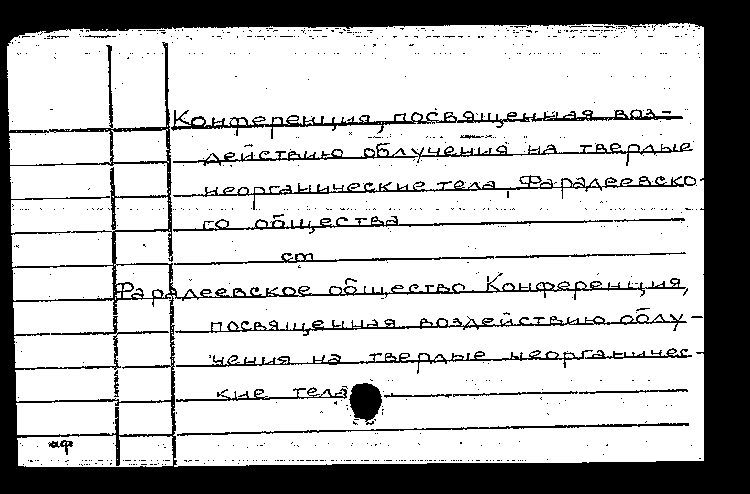 Конференция, посвященная воз-
действию облучения на твердые
неорганические тела, Фарадеевско-
го общества
ст
Фарадеевское общество. Конференция,
посвященная воздействию облу-
чения на твердые неорганичес-
кие тела
аф